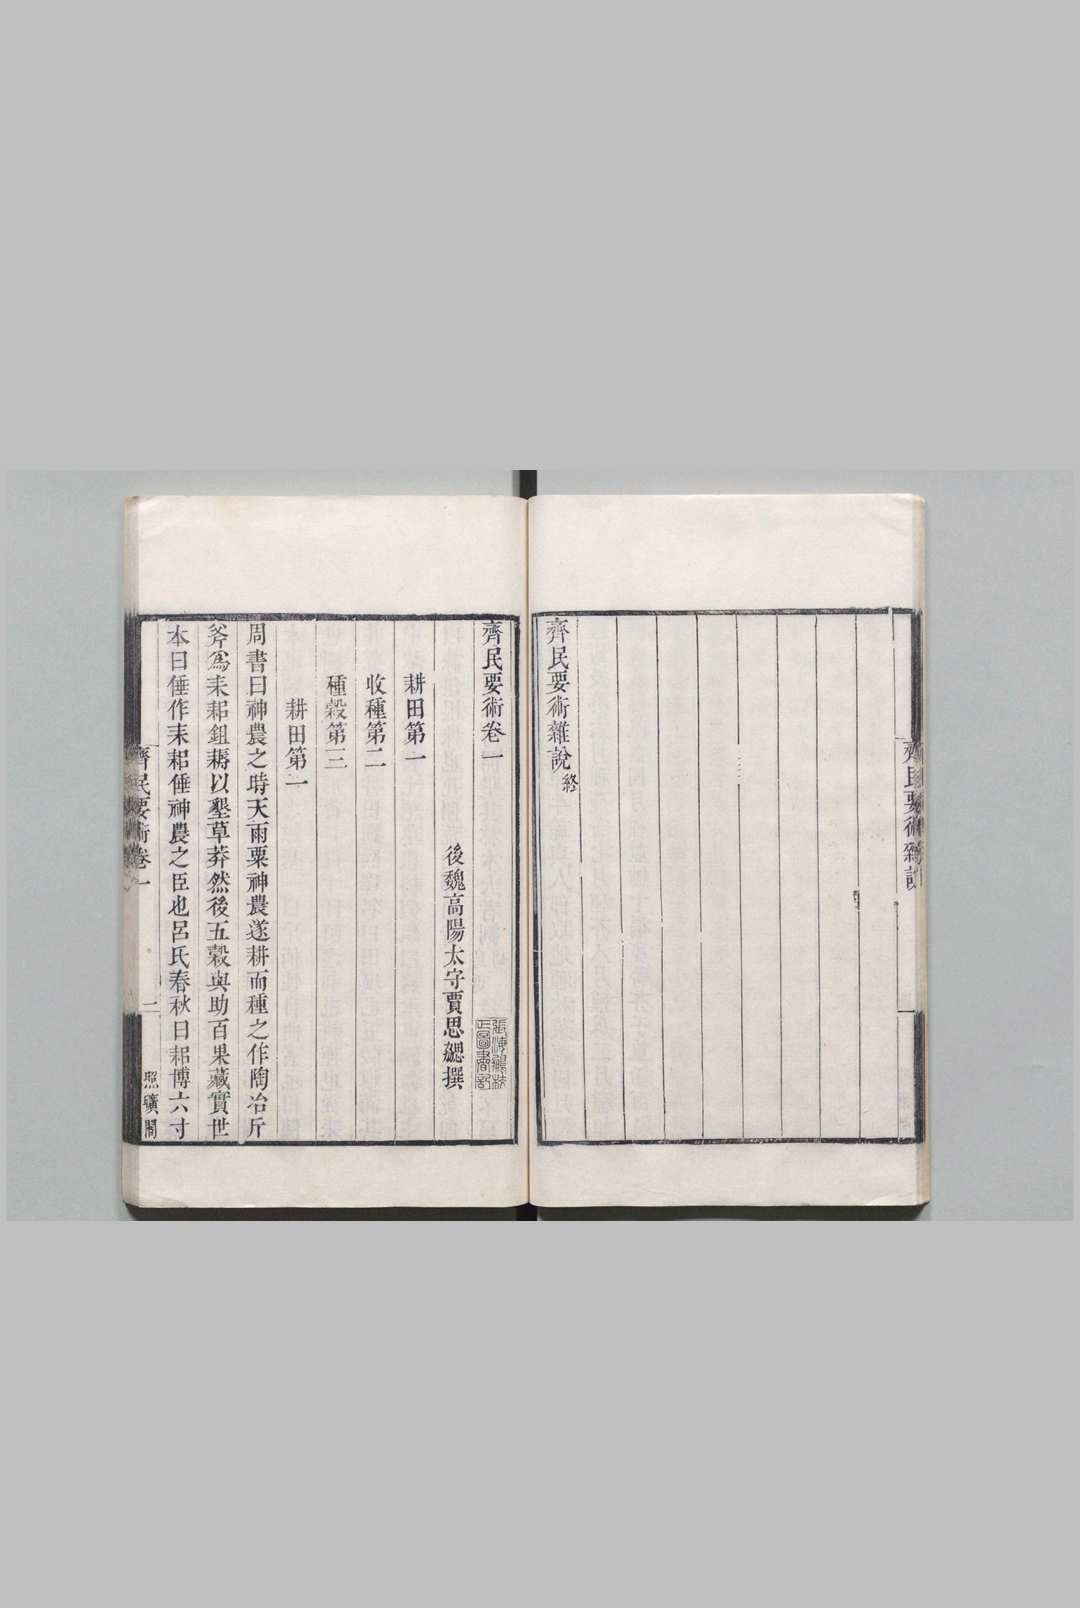 齊民要術雜說
齊民要術雜說終
齊民要術卷一
後魏高陽太守賈思勰撰
耕田第一
收種第二
種穀第三
耕田第一
周書曰神農之時天雨粟神農遂耕而種之作陶冶斤
斧爲耒耜鉏耨以墾草莽然後五穀與助百果藏實世
本曰倕作耒耜倕神農之臣也呂氏春秋曰耜博六寸
齊民要術卷一
二
照曠閣